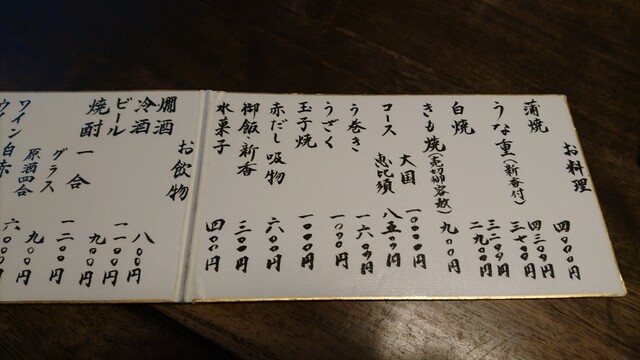 お料理
蒲焼 四〇〇〇円
うな重(新香付) 四三〇〇円
三七〇〇円
三二〇〇円
二九〇〇円
白焼
きも焼(売切御容赦) 九〇〇円
コース 大国 一〇〇〇〇円
恵比須 八五〇〇円
う巻き 一六〇〇円
うざく 一〇〇〇円
玉子焼 一〇〇〇円
赤だし吸物 六〇〇円
御飯・新香 三〇〇円
水菓子 四〇〇円
お飲物
燗酒 八〇〇円
冷酒 一一〇〇円
ビール 九〇〇円
焼酎 一合 一二〇〇円
グラス 九〇〇円
原酒四合 六〇〇〇円
ワイン
ワイン白赤